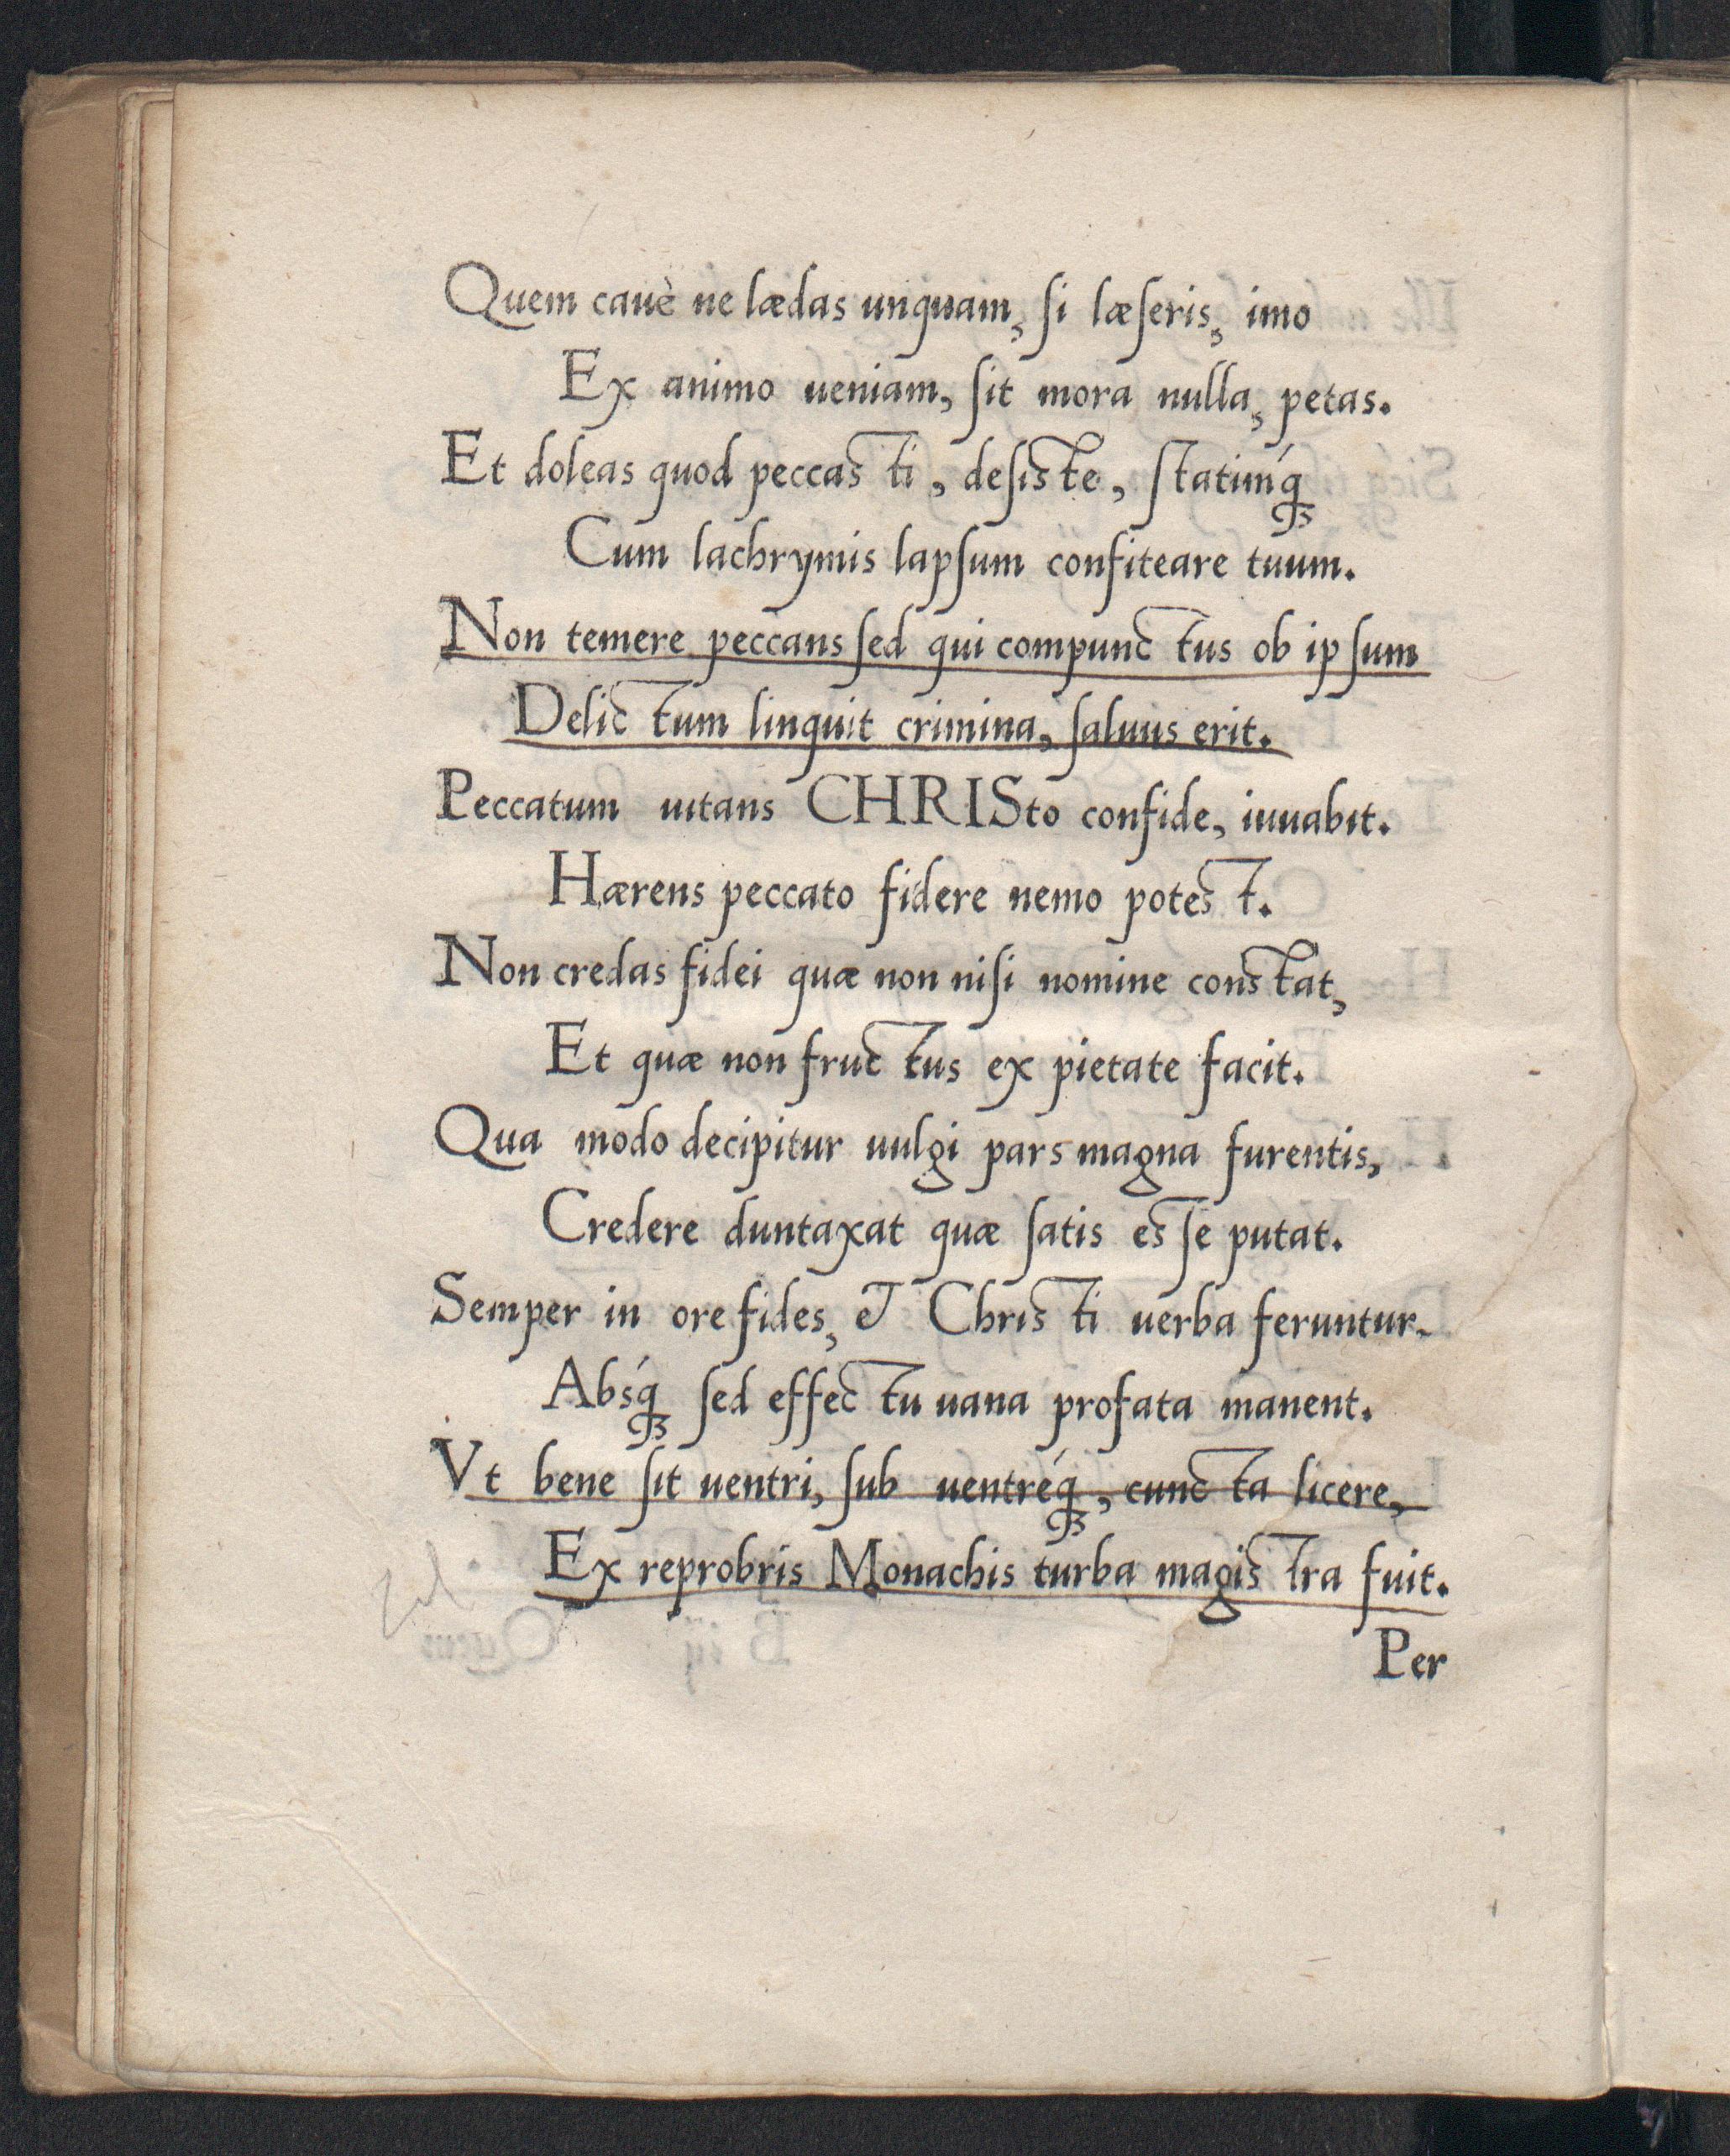 Quem cauè ne lædas unquam, si læseris, imo
Ex animo ueniam, sit mora nulla, petas.
Et doleas quod peccasti, desiste, statimq́ꝫ
Cum lachrymis lapsum confiteare tuum.
Non temere peccans sed qui compunctus ob ipsum
Delictum linquit crimina, saluus erit.
Peccatum uitans CHRISto confide, iuuabit.
Hærens peccato fidere nemo potest.
Non credas fidei quæ non nisi nomine constat,
Et quæ non fructus ex pietate facit.
Qua modo decipitur uulgi pars magna furentis,
Credere duntaxat quæ satis esse putat.
Semper in ore fides, & Christi uerba feruntur.
Absq́ꝫ sed effectu uana profata manent.
Vt bene sit uentri, sub uentreq́ꝫ, cuncta licere,
Ex reprobris Monachis turba magistra fuit.
Per